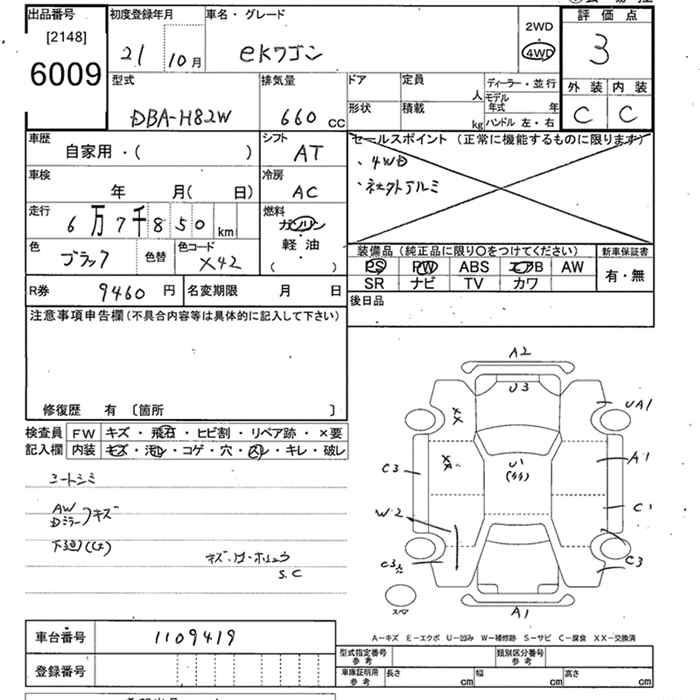 出品番号
[2148]
6009
初度登録年月
21 10月
車名・グレード
eKワゴン
2WD
・
4WD
評価点
3
外装 内装
C C
型式
DBA-H82W
排気量
660 CC
ドア
定員
人
形状
積載
kg
ディーラー・並行
モデル年式 年
ハンドル 左・右
車歴
自家用・( )
シフト
AT
セールスポイント (正常に機能するものに限ります)
・4WD
・社外アルミ
車検
年 月( 日)
冷房
AC
走行
6万7千850 km
燃料
ガソリン
軽油
( )
色
ブラック
色替
色コード
X42
装備品 (純正品に限り〇をつけてください)
PS PW ABS エアB AW
SR ナビ TV カワ
新車保証書
有・無
R券 9460 円
名変期限 月 日
後日品
注意事項申告欄 (不具合内容等は具体的に記入して下さい)
修復歴 有 〔箇所 〕
検査員記入欄
FW キズ・飛石・ヒビ割・リペア跡・×要
内装 キズ・汚レ・コゲ・穴・スレ・キレ・破レ
シートシミ
AW
Dミラー
キズ
下廻(サ)
キズ・
S.C
A2
U3
UA1
XX
XX
U1
A1
C3
C1
W2
C3
C3
スペア
A1
A−キズ E−エクボ U−凹み W−補修跡 S−サビ C−腐食 XX−交換済
車台番号 1109419
登録番号
型式指定番号
参考
類別区分番号
参考
車庫証明用
参考
長さ cm
幅 cm
高さ cm